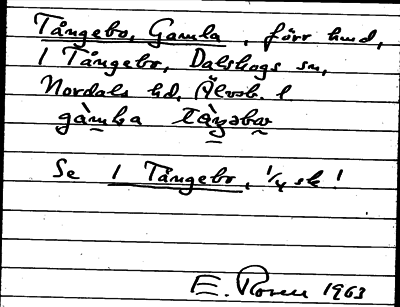 Tångebo, Gamla, förr hmd,
1 Tångebo, Dalskogs sn,
Nordals hd, Älvsb. l
gàmla tàŋəbω
Se 1 Tångebo, 1/4 sk!
E. Rosen 1963